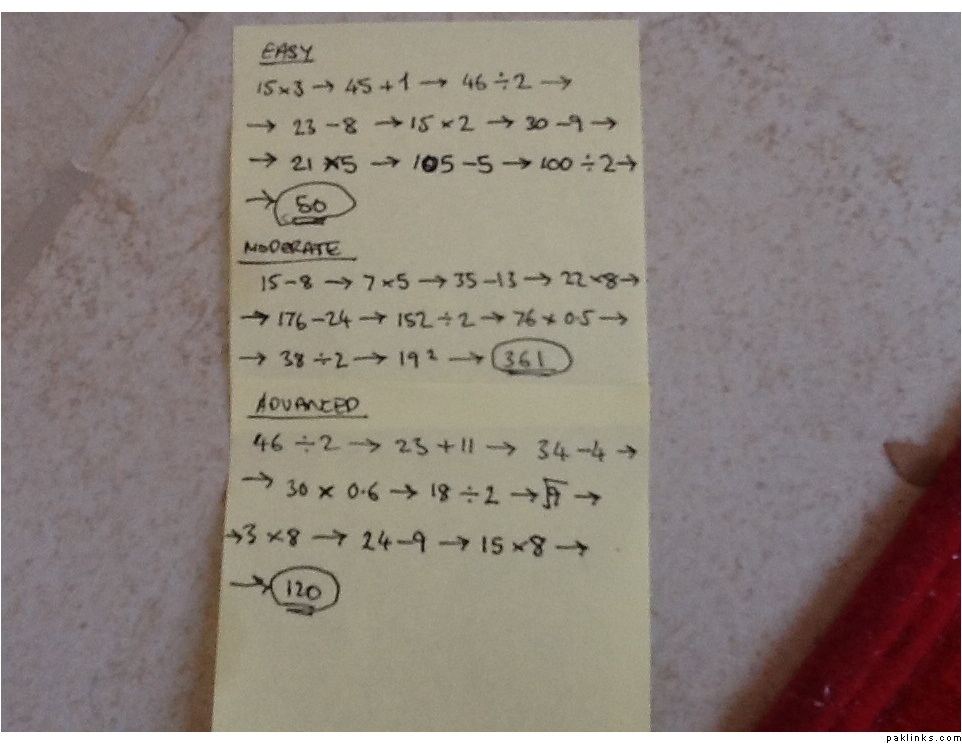 EASY
15×3 → 45+1 → 46÷2 →
→ 23-8 → 15×2 → 30-9 →
→ 21×5 → 105-5 → 100÷2→
→ 50
MODERATE
15-8 → 7×5 → 35-13 → 22×8→
→ 176-24 → 152÷2 → 76×0.5 →
→ 38÷2 → 19² → 361
ADVANCED
46÷2 → 23+11 → 34-4 →
→ 30×0.6 → 18÷2 → √9 →
→3×8 → 24-9 → 15×8 →
→ 120
paklinks.com